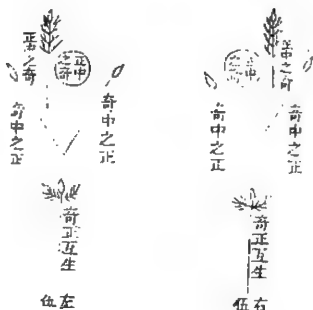 正中之奇
正中
之奇
奇中之正
奇中之正
奇正互生
右伍
正中之奇
正中
之奇
奇中之正
奇中之正
奇正互生
左伍